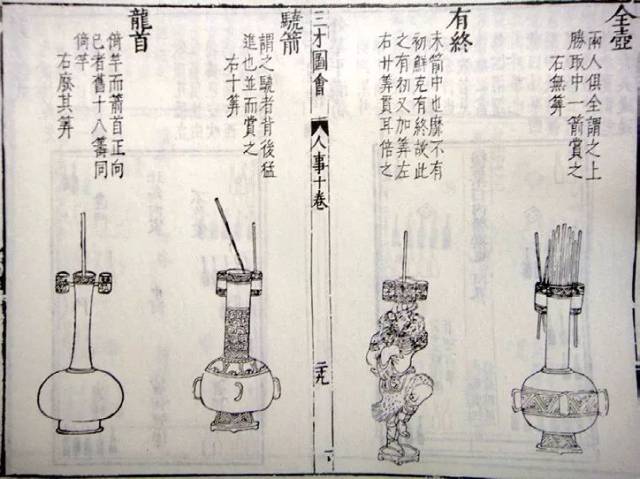 全壺
兩人俱全謂之上
勝取中一箭賞之
右無筭
有終
末箭中也靡不有
初鮮克有終故此
之有初又加筭左
右廿筭貫耳倍之
三才圖會
人事十卷
二九
驍箭
謂之驍者背後猛
進也並而賞之
右十筭
龍首
倚竿而箭首正向
己者舊十八籌同
倚竿
右廢其筭